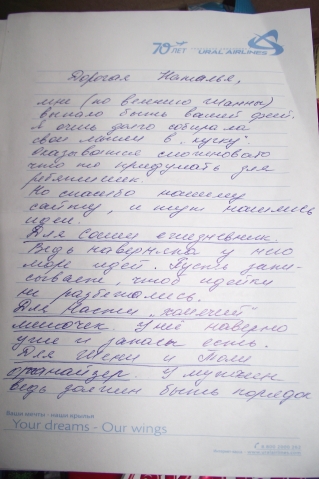 70 ЛЕТ URAL AIRLINES
Дорогая Наталья,
мне (по велению Жанны)
выпало быть вашей феей.
Я очень долго собирала
свои мысли в "кучку".
Оказывается сложновато
что то придумать для
ребятишек.
Но спасибо нашему
сайту, и тут нашлись
идеи.
Для Саши ежедневник.
Ведь наверняка у него
море идей. Пусть запи-
сывает, чтоб идейки
не разбежались.
Для Насти "хомячий"
мешочек. У неё наверно
уже и запасы есть.
Для Жени и Толи
органайзер. У мужчин
ведь должен быть порядок
Ваши мечты - наши крылья
Your dreams - Our wings